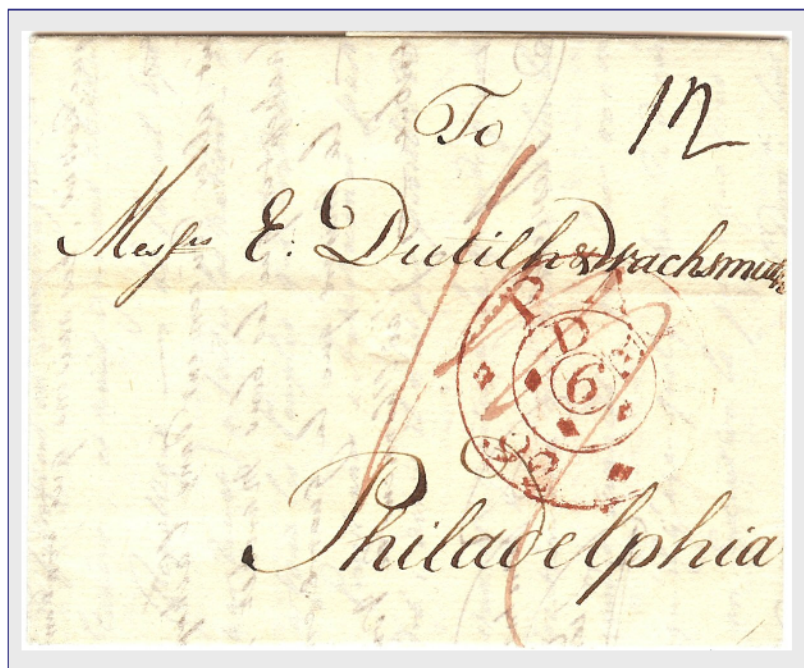 To 12
Messrs E. Dutilh & Wachsmuth
PA
D
6
Philadelphia